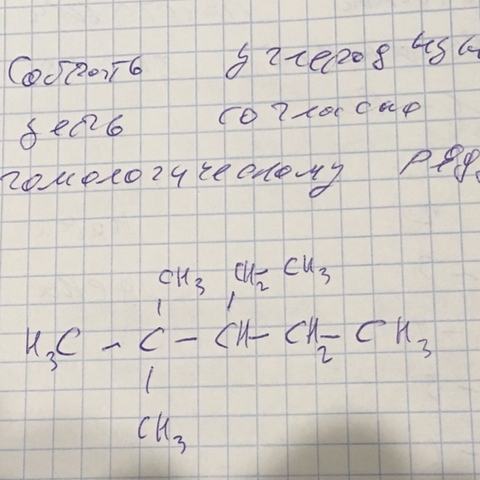 Собрать углерод
цепь согласно
гомологическому ряду
CH₃ CH₂- CH₃
H₃C - C - CH - CH₂ - CH₃
CH₃